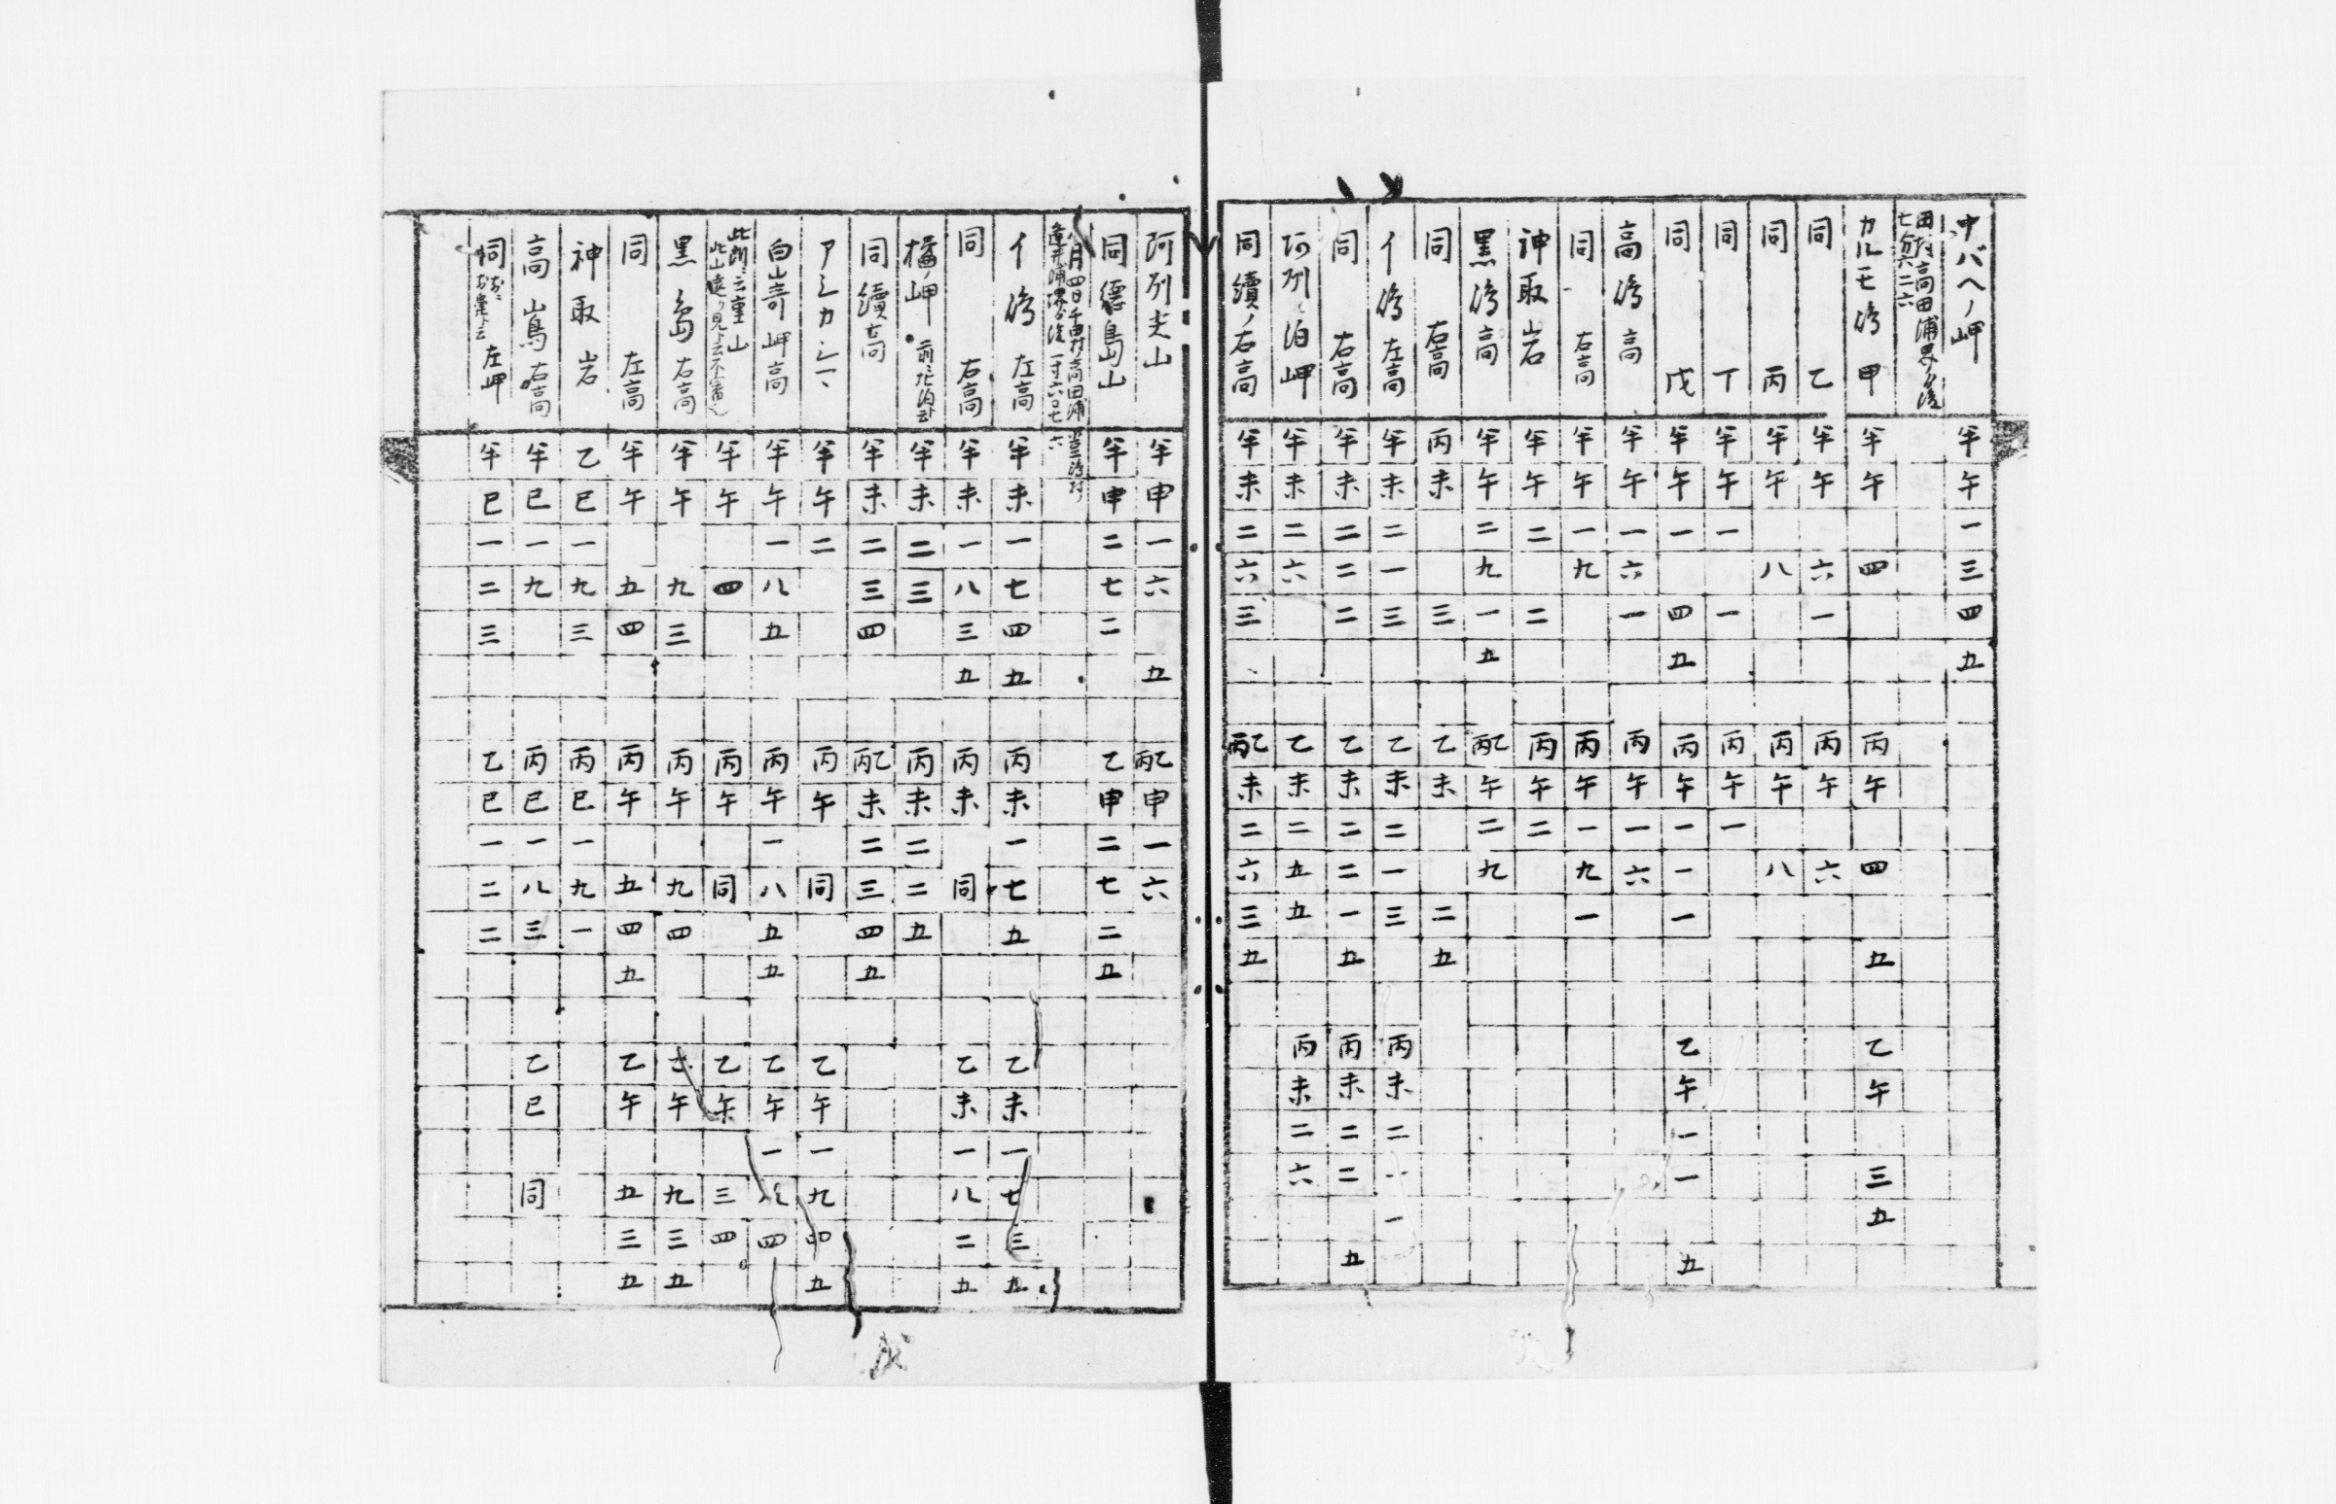 中バヘノ岬 半午一三四五
カルモ渟 甲 半午四 丙午四五 乙午三五
同 乙 半午六一 丙午六
同 丙 半午八 丙午八
同 丁 半午一一 丙午一
同 戊 半午一四五 丙午一一一 乙午一一五
高渟 高 半午一六一 丙午一六
同 右高 半午一九 丙午一九一
神取岩 半午二二 丙午二
黒渟 高 半午二九一五 丙乙午二九
同 右高 丙未三 乙未二五
イ渟 左高 半未二一三 乙未二一三 丙未二一一
同 右高 半未二二二 乙未二二一五 丙未二二五
泊岬 半未二六 乙未二五五 丙未二六
同續ノ右高 半未二六三 丙乙未二六三五
阿列夫山 半申一六五 丙乙申一六
同德島山 半申二七二 乙申二七二五
イ渟 左高 半未一七四五 丙未一七五 乙未一七三五
同 右高 半未一八三五 丙未同 乙未一八二五
岬 半未二三 丙未二二五
同續 右高 半未二三四 丙乙未二三四五
アシカシマ 半午二 丙午同 乙午一九四五
白山嵜岬高 半午一八五 丙午一八五五 乙午一八四
半午四 丙午同 乙午三四
黒島 右高 半午九三 丙午九四 乙午九三五
同 左高 半午五四 丙午五四五 乙午五三五
神取岩 乙巳一九三 丙巳一九一
高嶌 右高 半巳一九 丙巳一八三 乙巳同
同 左岬 半巳一二三 乙巳一二二